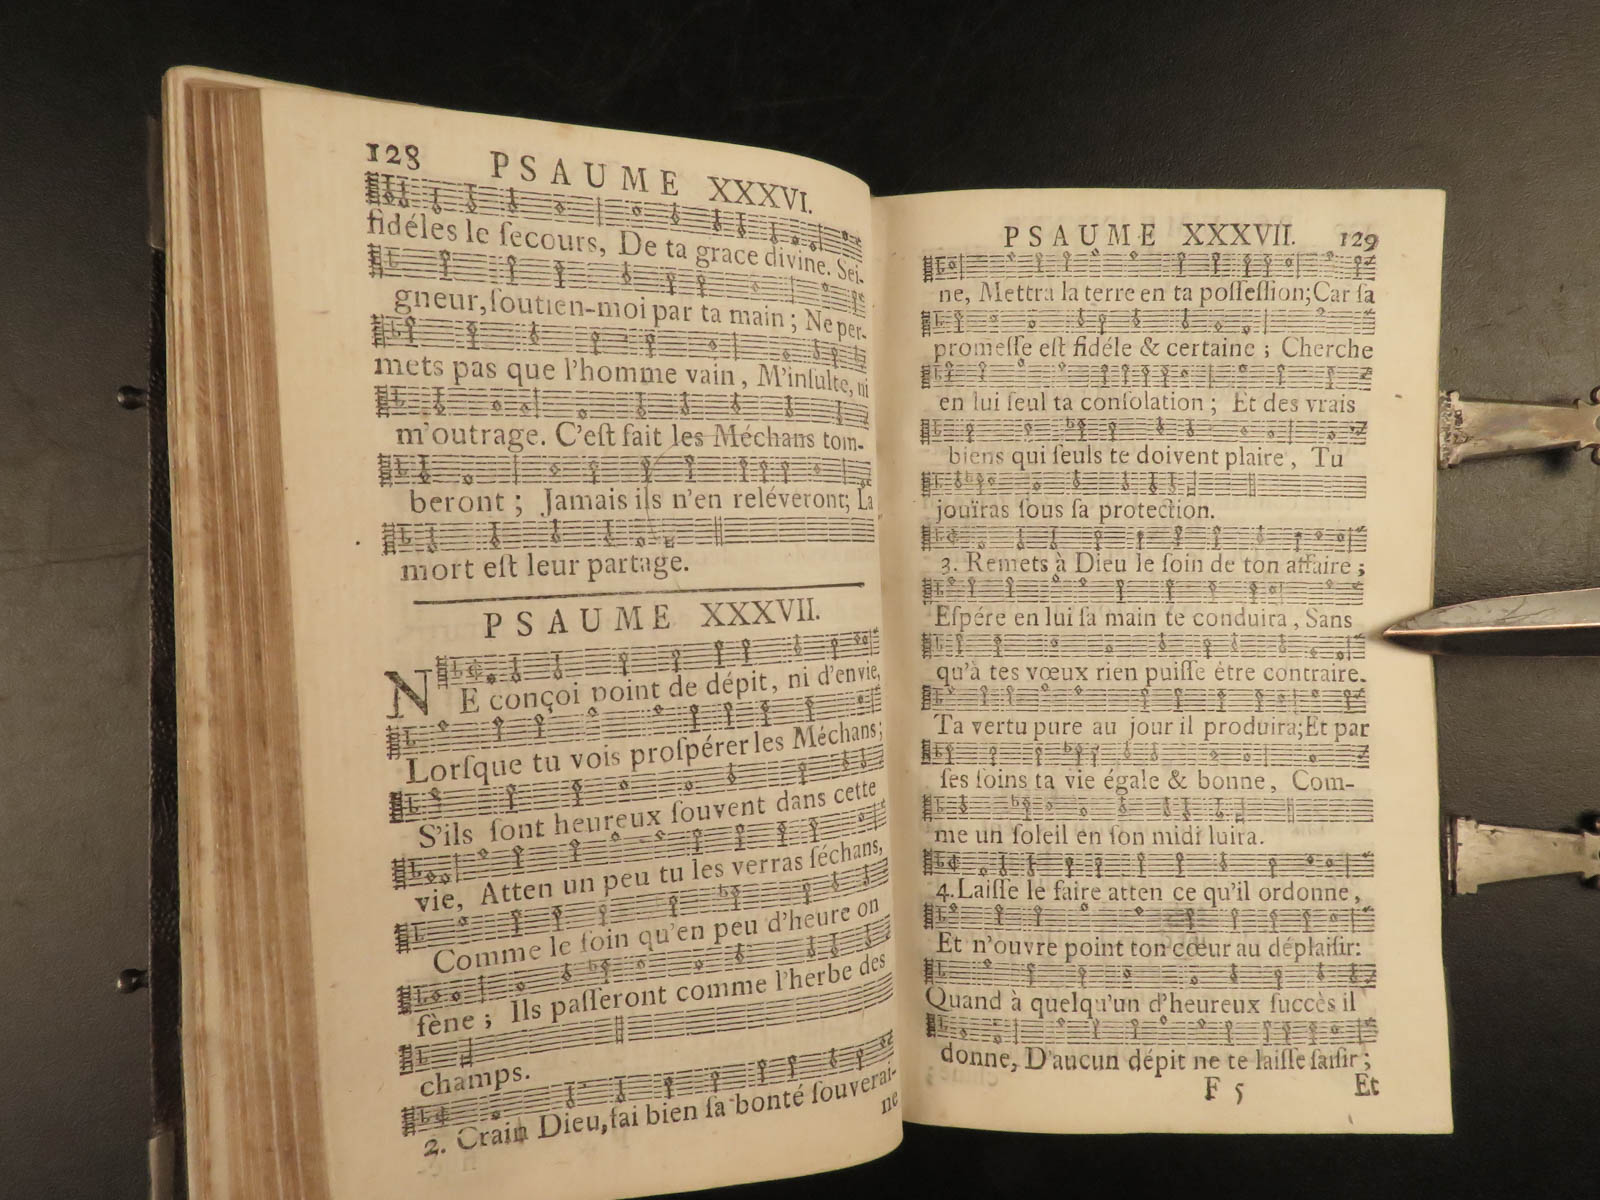 128 PSAUME XXXVI.
fidéles le ſecours, De ta grace divine. Sei-
gneur, ſoutien-moi par ta main; Ne per-
mets pas que l'homme vain, M'inſulte, ni
m'outrage. C'eſt fait les Méchans tom-
beront; Jamais ils n'en reléveront; La
mort eſt leur partage.
PSAUME XXXVII.
NE conçoi point de dépit, ni d'envie,
Lorſque tu vois proſpérer les Méchans;
S'ils ſont heureux ſouvent dans cette
vie, Atten un peu tu les verras ſéchans,
Comme le foin qu'en peu d'heure on
fène; Ils paſſeront comme l'herbe des
champs.
2. Crain Dieu, fai bien ſa bonté ſouverai-
ne
PSAUME XXXVII. 129
ne, Mettra la terre en ta poſſeſſion; Car ſa
promeſſe eſt fidéle & certaine; Cherche
en lui ſeul ta conſolation; Et des vrais
biens qui ſeuls te doivent plaire, Tu
jouïras ſous ſa protection.
3. Remets à Dieu le ſoin de ton affaire;
Eſpére en lui ſa main te conduira, Sans
qu'à tes vœux rien puiſſe être contraire.
Ta vertu pure au jour il produira; Et par
ſes ſoins ta vie égale & bonne, Com-
me un ſoleil en ſon midi luira.
4. Laiſſe le faire atten ce qu'il ordonne,
Et n'ouvre point ton cœur au déplaiſir:
Quand à quelqu'un d'heureux ſuccès il
donne, D'aucun dépit ne te laiſſe ſaiſir;
F 5 Et